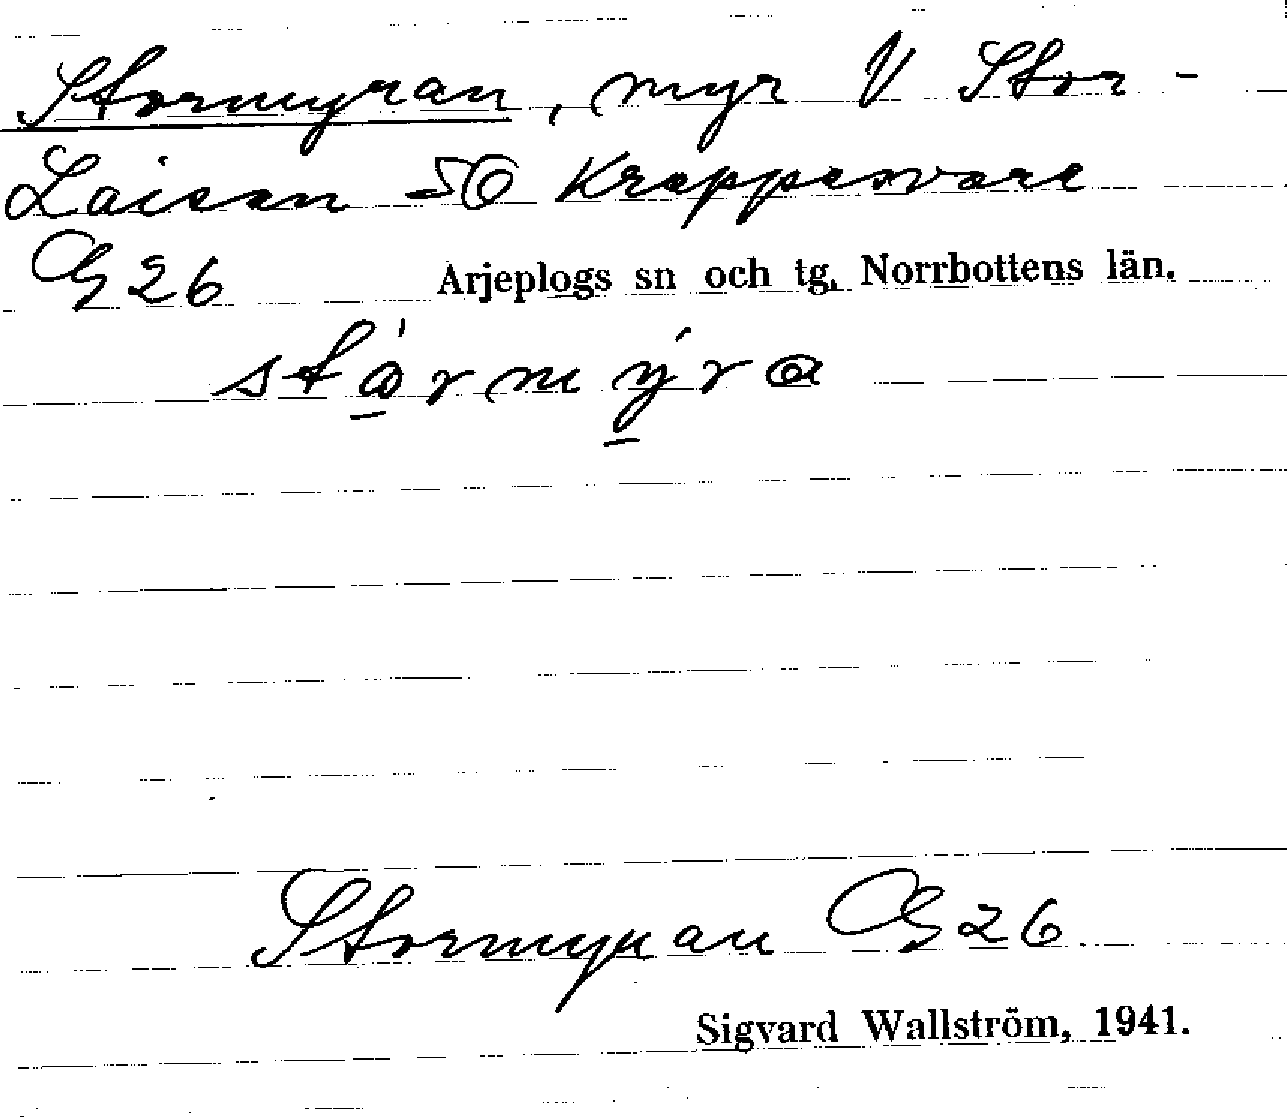 Stormyran, myr V Stor-
Laisan SO Krappesvare
G 26 Arjeplogs sn och tg. Norrbottens län.
Stormyran G 26
Sigvard Wallström, 1941.